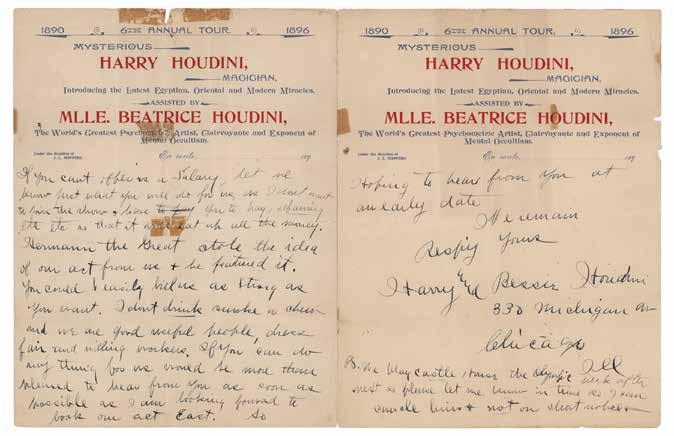 1890 6TH ANNUAL TOUR. 1896
MYSTERIOUS
HARRY HOUDINI,
MAGICIAN,
Introducing the Latest Egyptian, Oriental and Modern Miracles.
ASSISTED BY
MLLE. BEATRICE HOUDINI,
The World's Greatest Psychometric Artist, Clairvoyante and Exponent of
Mental Occultism.
Under the direction of
En route, 189
If you cant offer us a Salary, let me
know just what you will do for us, as I dont want
to join the show & have to pay you to hay,
etc etc so that it will eat up all the money.
Hermann the Great stole the idea
of our act from us & he featured it.
You could easily bill us as strong as
you want. I dont drink smoke or chew
and we are good useful people, dress
fair and willing workers. If you can do
any thing for us would be more than
pleased to hear from you as soon as
possible as I am looking forward to
book our act East. So
1890 6TH ANNUAL TOUR. 1896
MYSTERIOUS
HARRY HOUDINI,
MAGICIAN,
Introducing the Latest Egyptian, Oriental and Modern Miracles.
ASSISTED BY
MLLE. BEATRICE HOUDINI,
The World's Greatest Psychometric Artist, Clairvoyante and Exponent of
Mental Occultism.
Under the direction of
En route, 189
Hoping to hear from you at
an early date
We remain
Respfy Yours
Harry and Bessie Houdini
330 Michigan av
Chicago
Ill
PS. We play Castle House the Olympic week after
next so please let me know in time as I can
cancel them & not on short notice